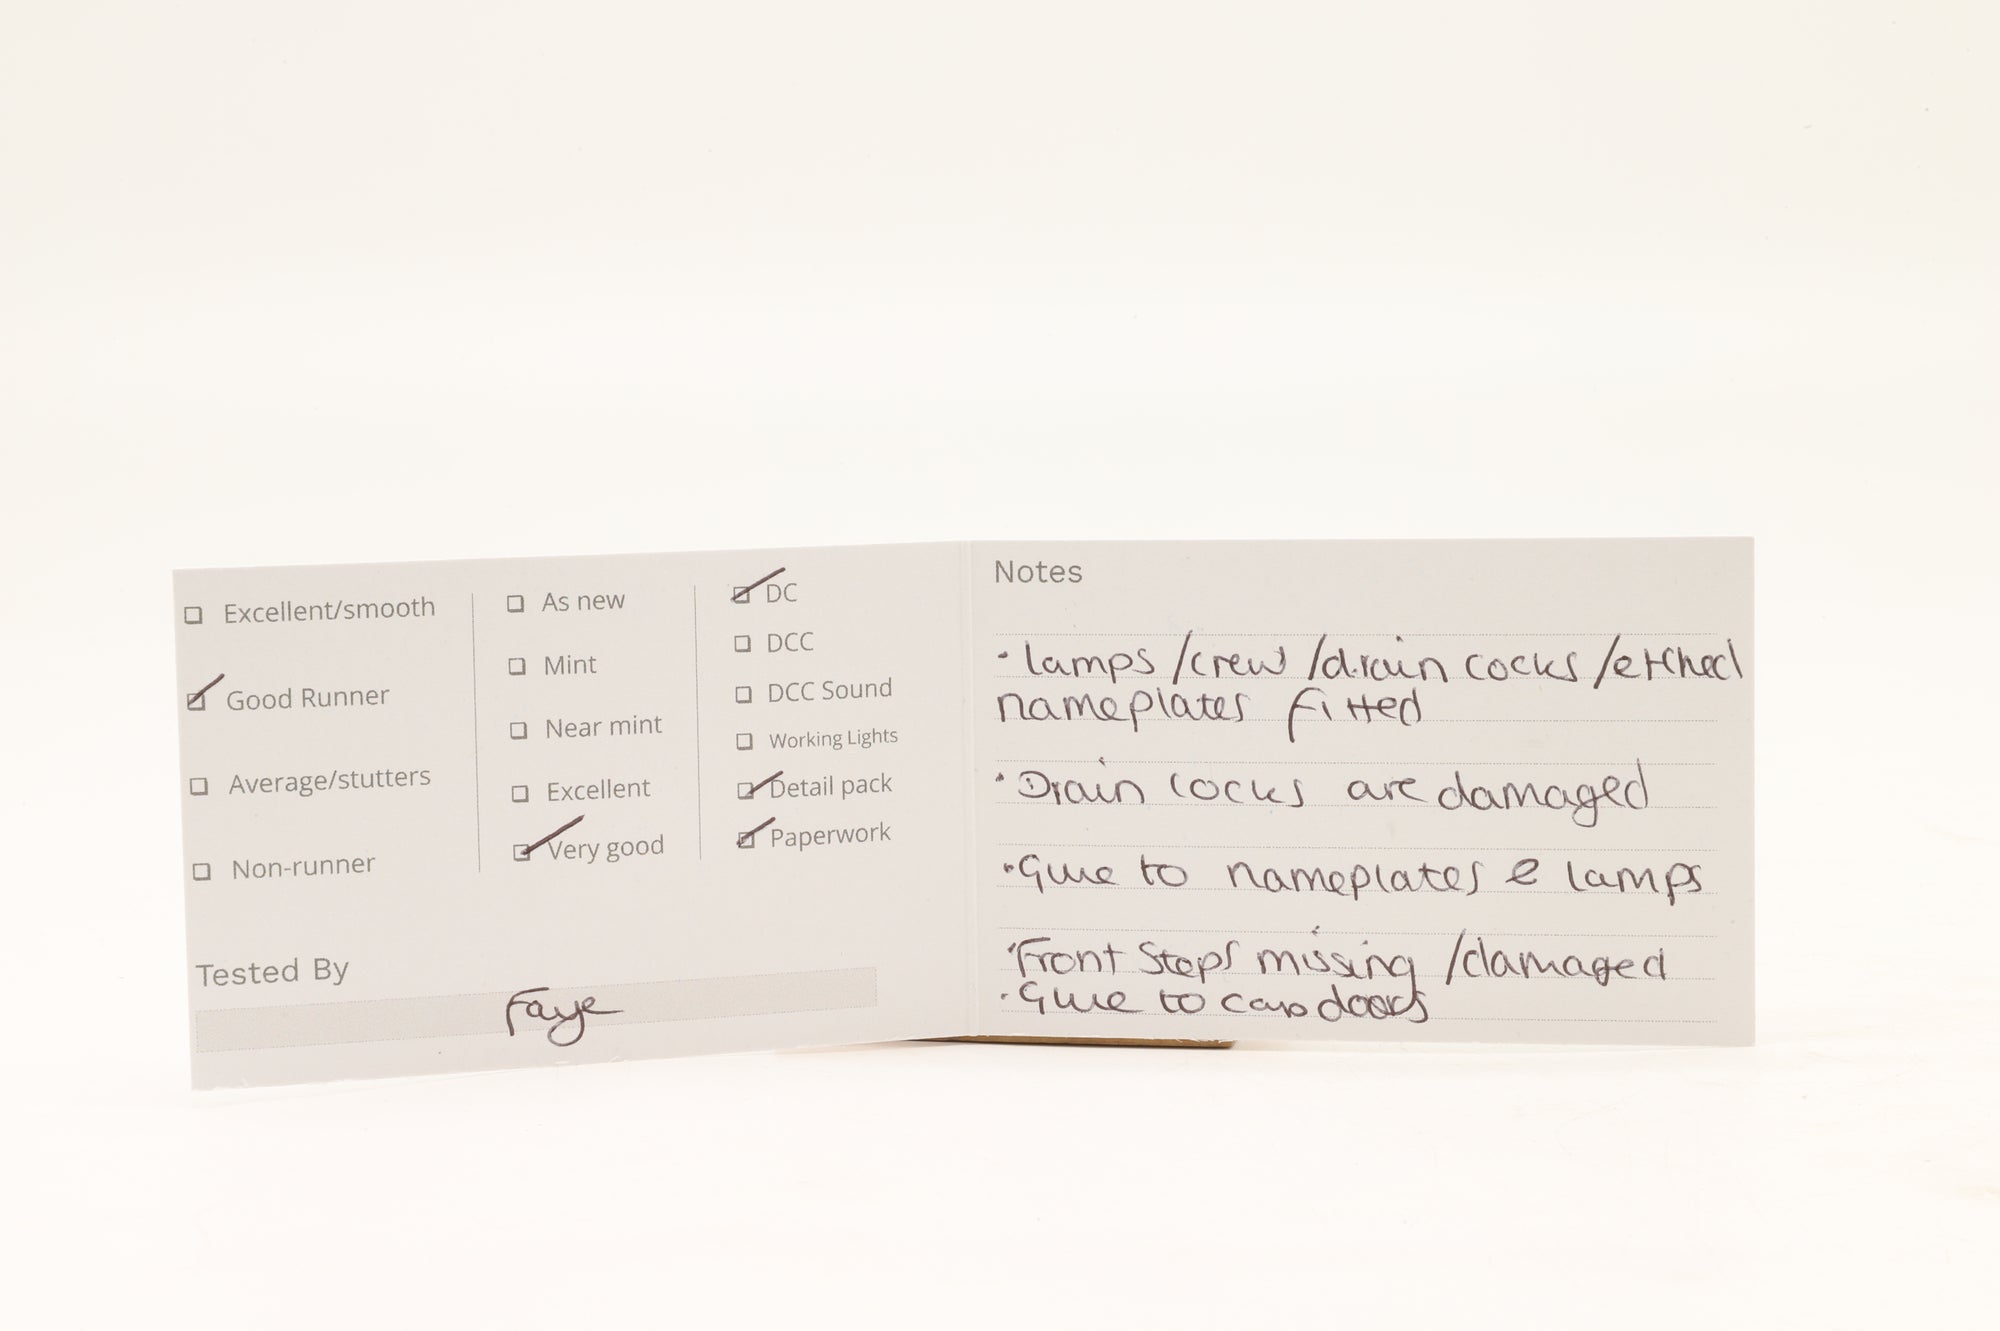 Excellent/smooth
Good Runner
Average/stutters
Non-runner
As new
Mint
Near mint
Excellent
Very good
DC
DCC
DCC Sound
Working Lights
Detail pack
Paperwork
Tested By
Faye
Notes
• lamps /crew /drain cocks /etched
nameplates fitted
• Drain cocks are damaged
• Glue to nameplates & lamps
• Front Steps missing /damaged
• Glue to cab doors